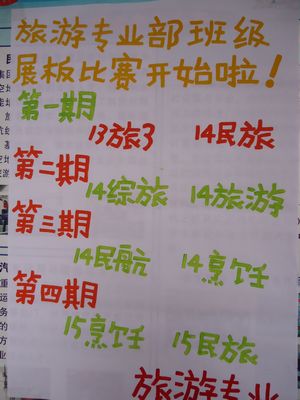 旅游专业部班级
展板比赛开始啦！
第一期
13旅3 14民旅
第二期
14综旅 14旅游
第三期
14民航 14烹饪
第四期
15烹饪 15民旅
旅游专业